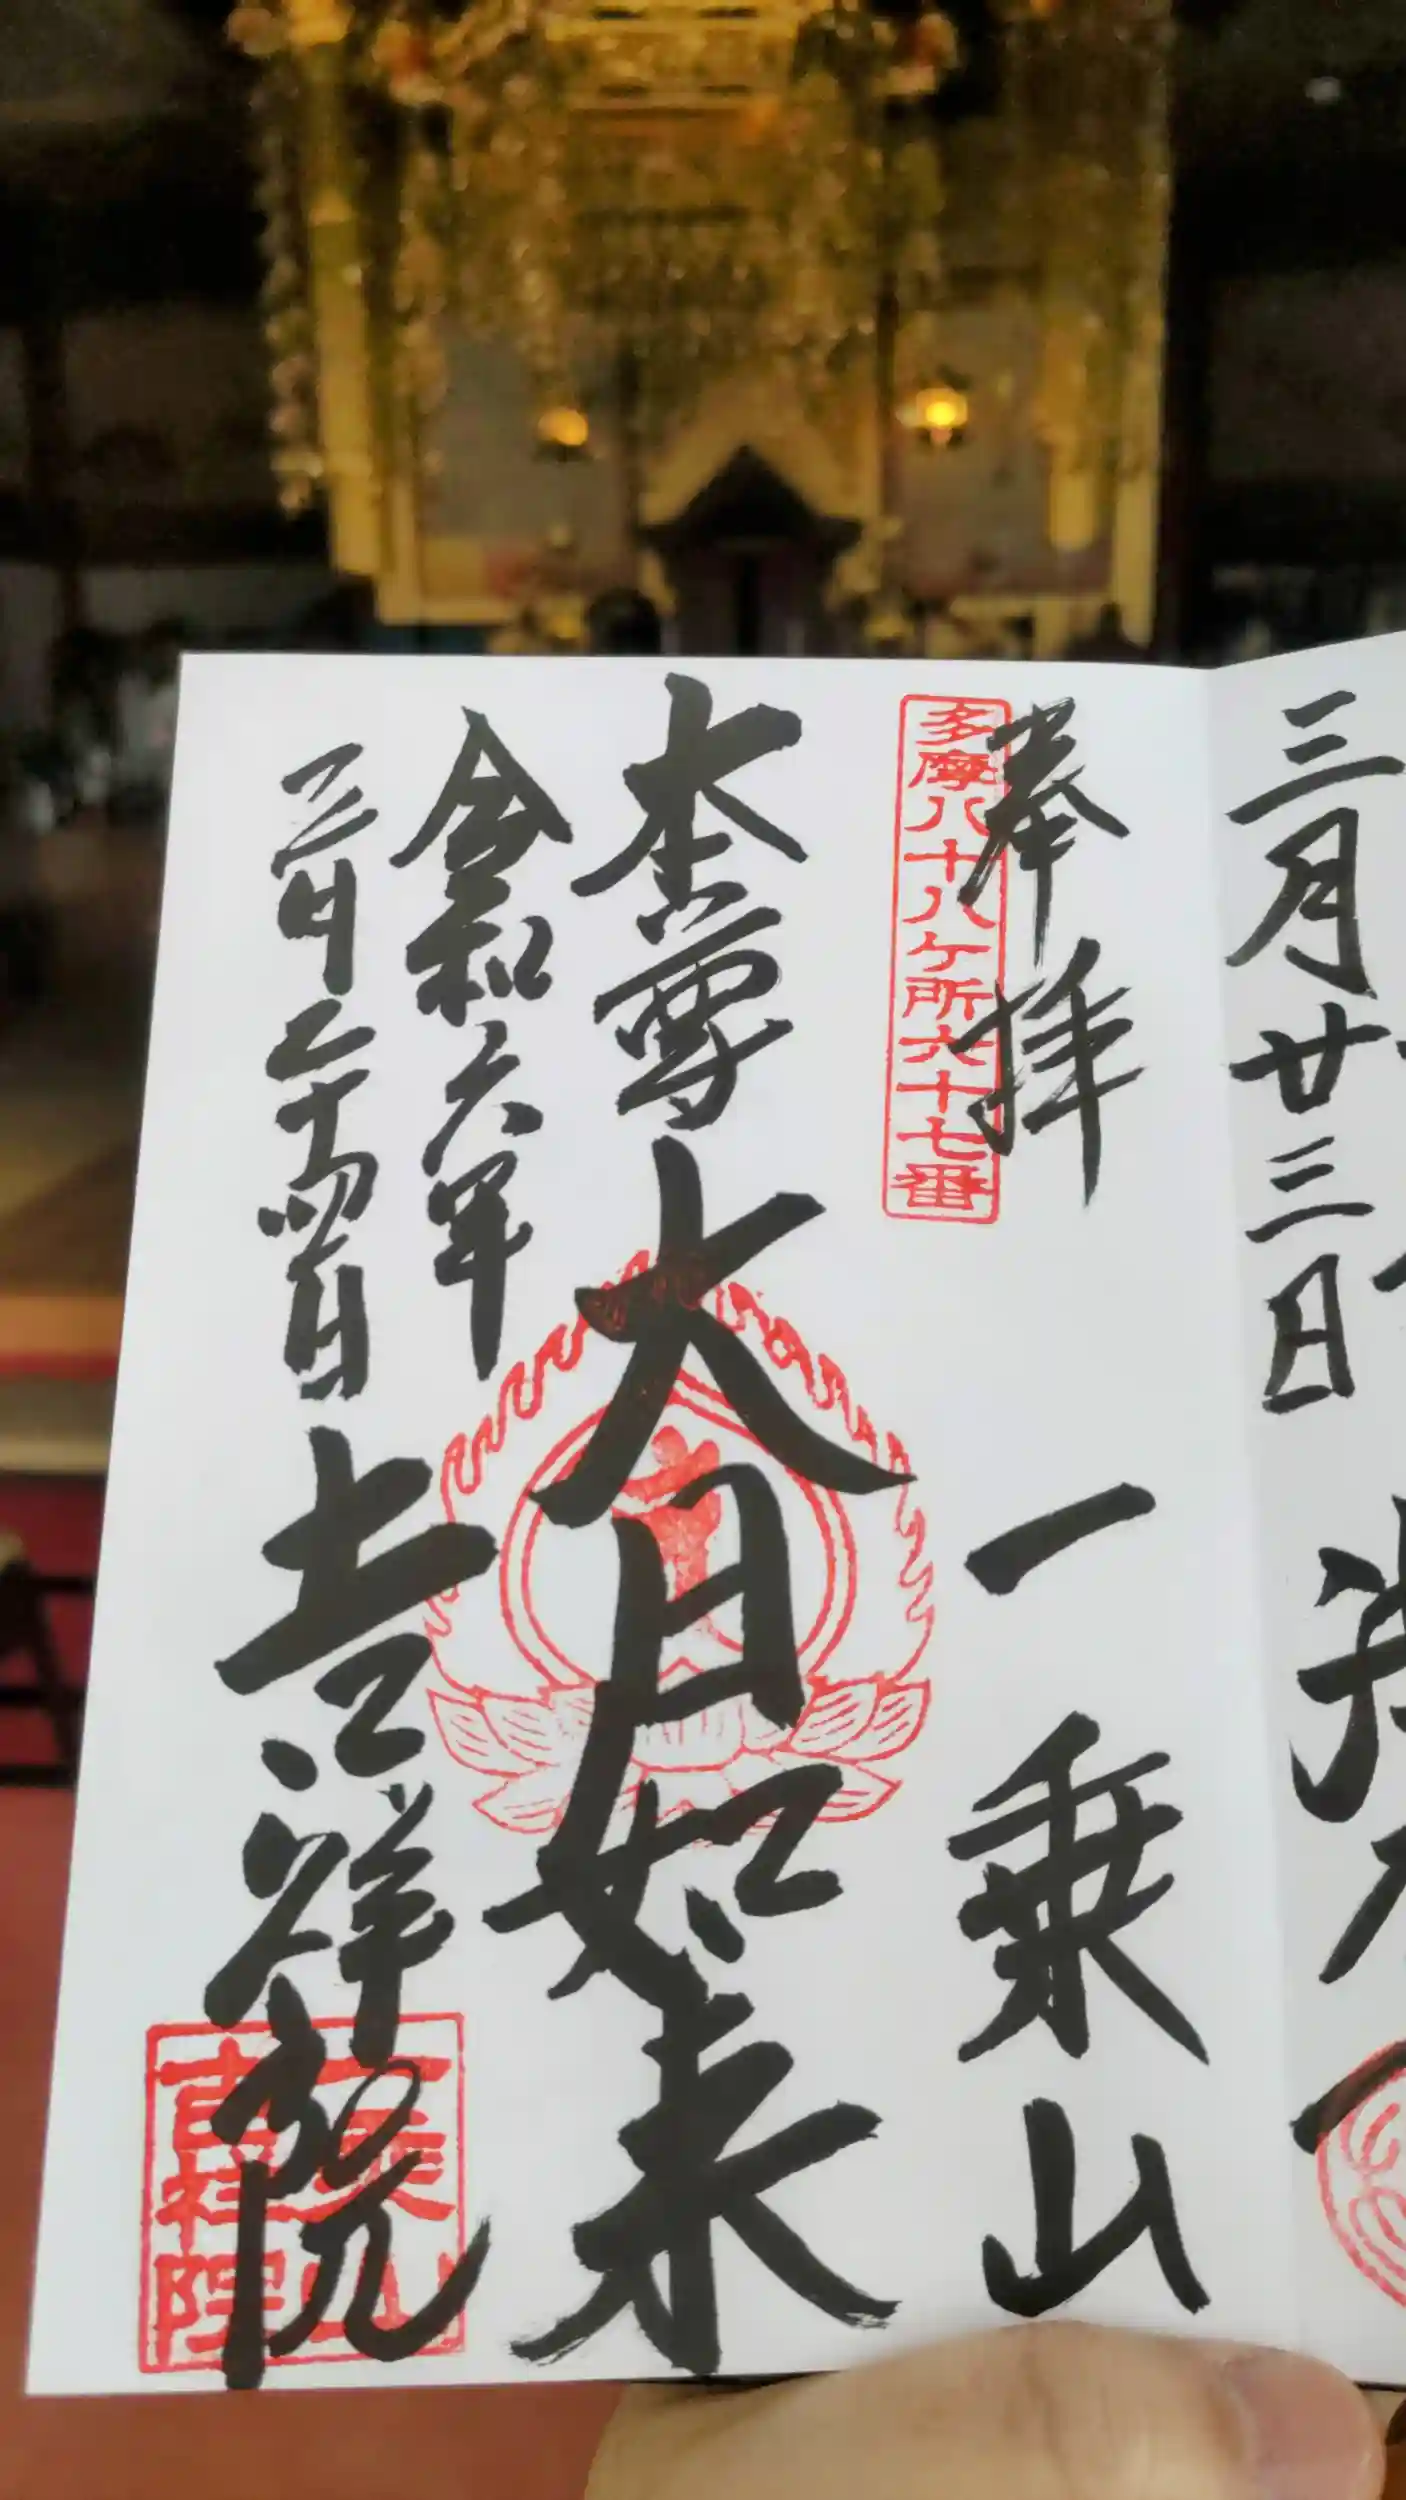 三月廿三日
奉拝
多摩八十八ケ所六十七番
一乗山
本尊 大日如来
令和六年
三月二十四日
吉祥院
一乗山
吉祥院